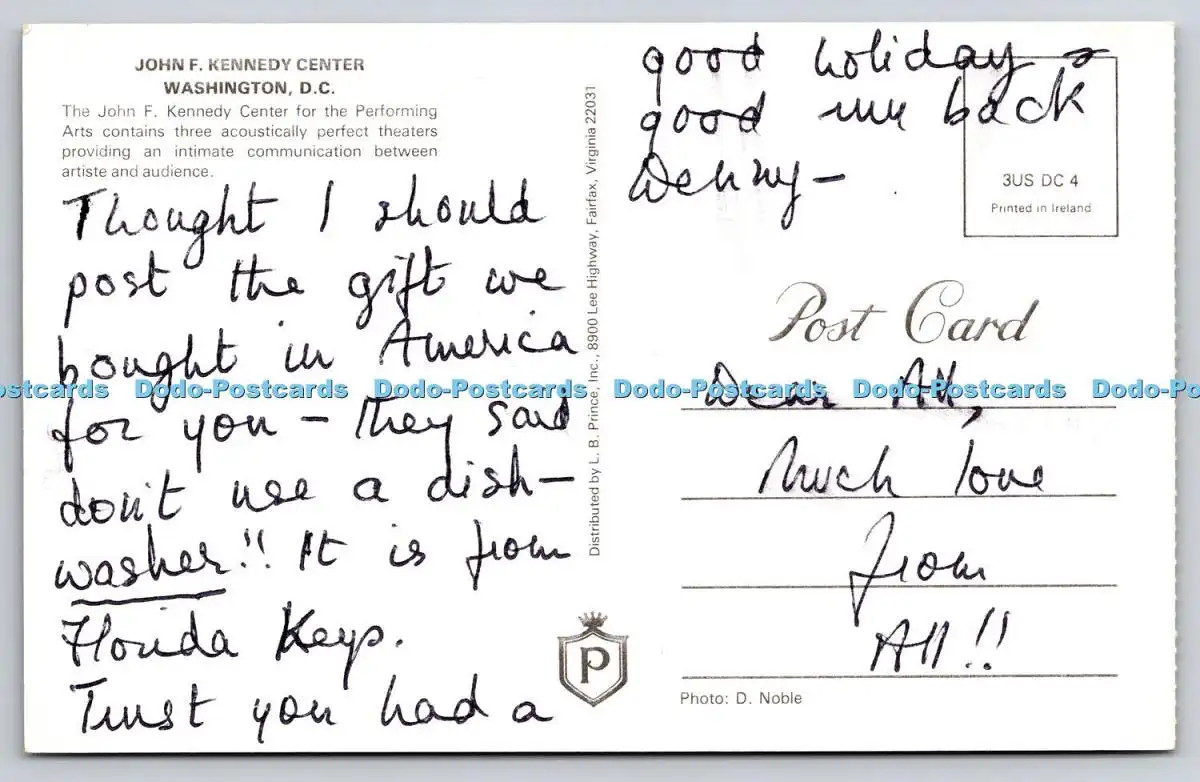 JOHN F. KENNEDY CENTER
WASHINGTON, D.C.
The John F. Kennedy Center for the Performing
Arts contains three acoustically perfect theaters
providing an intimate communication between
artiste and audience.
Thought I should
post the gift we
bought in America
for you – They said
don't use a dish–
washer!! It is from
Florida Keys.
Trust you had a
good holiday &
good back
Distributed by L. B. Prince, Inc., 8900 Lee Highway, Fairfax, Virginia 22031
P
3US DC 4
Printed in Ireland
Post Card
Dear All,
Much love
from
All!!
Photo: D. Noble
Dodo-Postcards Dodo-Postcards Dodo-Postcards Dodo-Postcards Dodo-Postcards